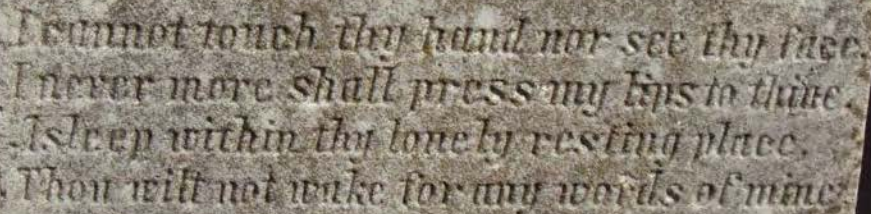 I cannot touch thy hand nor see thy face.
I never more shall press my lips to thine.
Asleep within thy lonely resting place.
Thou wilt not wake for any words of mine.